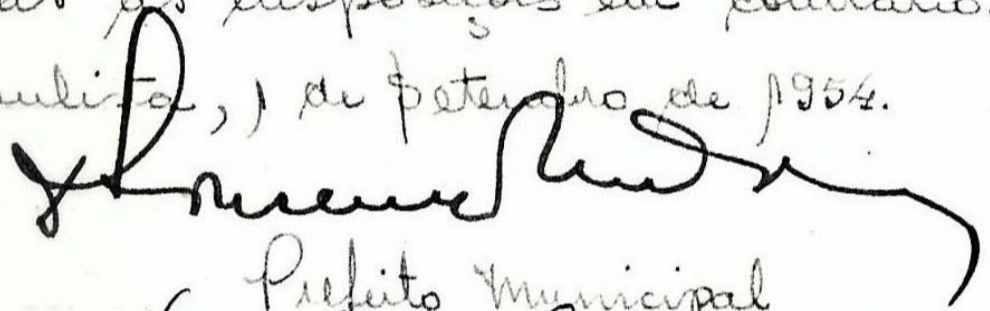 as disposições em contrário.
, 1 de Setembro de 1954.
Prefeito Municipal